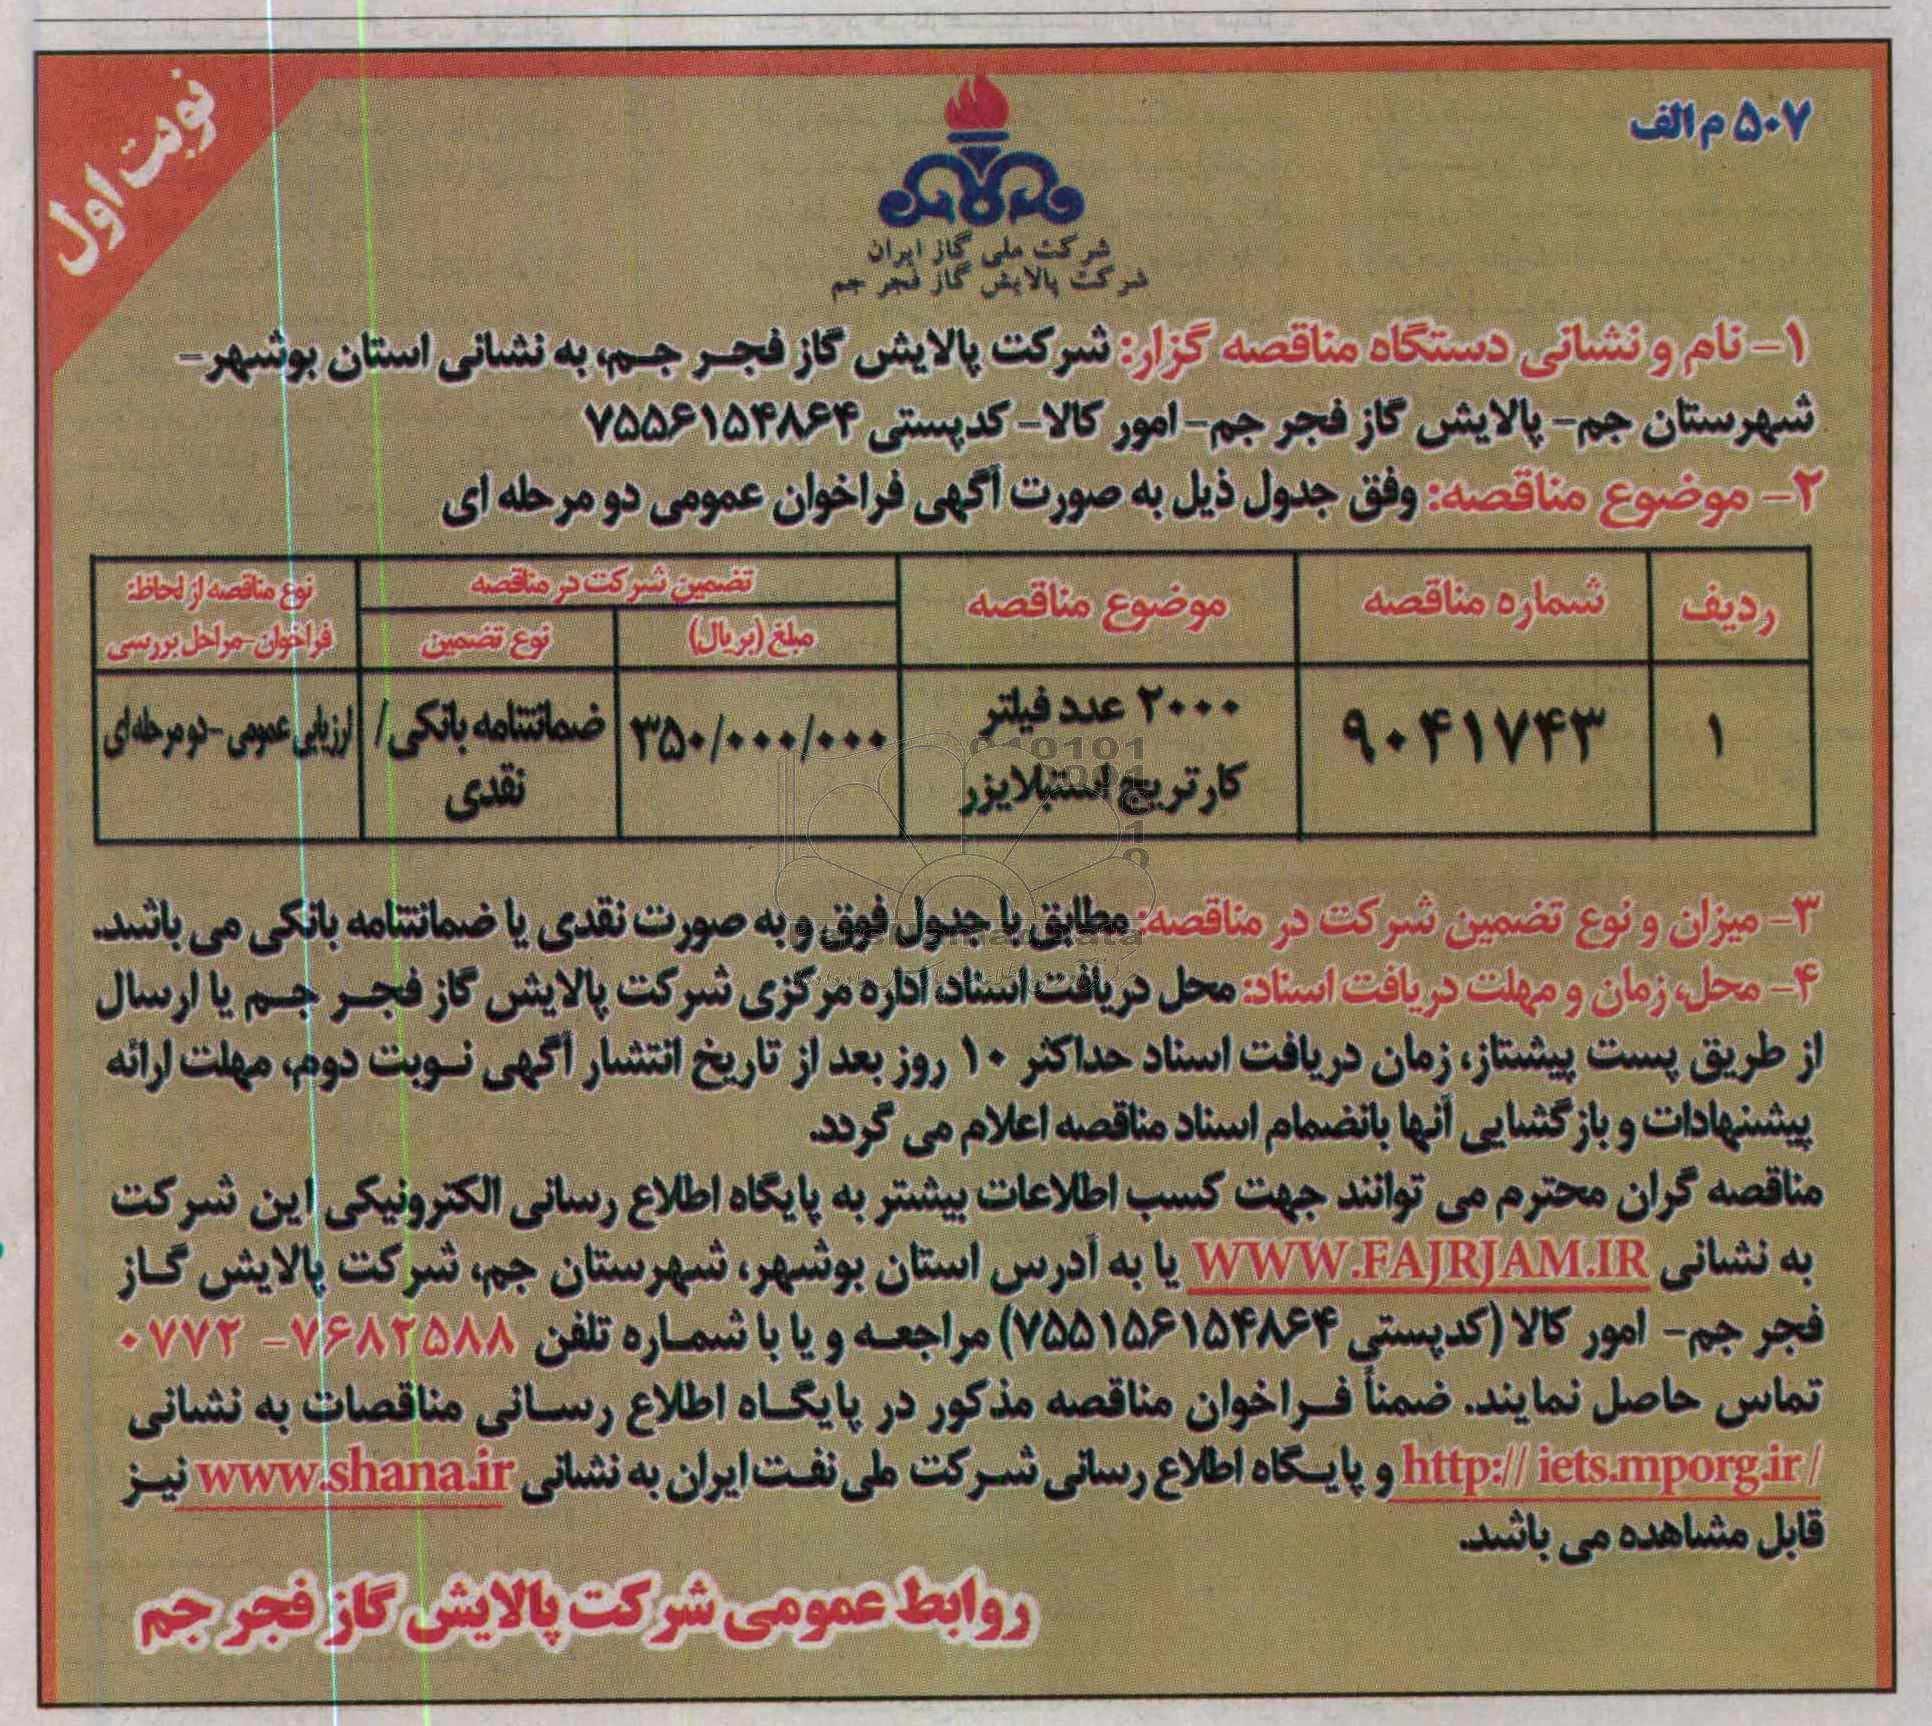 ۵۰۷ م الف
نوبت اول
شرکت ملی گاز ایران
شرکت پالایش گاز فجر جم
۱- نام و نشانی دستگاه مناقصه گزار: شرکت پالایش گاز فجر جم، به نشانی استان بوشهر-
شهرستان جم- پالایش گاز فجر جم- امور کالا- کدپستی ۷۵۵۶۱۵۴۸۶۴
۲- موضوع مناقصه: وفق جدول ذیل به صورت آگهی فراخوان عمومی دو مرحله ای
ردیف شماره مناقصه موضوع مناقصه تضمین شرکت در مناقصه نوع مناقصه از لحاظ:
مبلغ (بریال) نوع تضمین فراخوان-مراحل بررسی
۱ ۹۰۴۱۷۴۳ ۲۰۰۰ عدد فیلتر ۳۵۰/۰۰۰/۰۰۰ ضمانتنامه بانکی/ ارزیابی عمومی -دو مرحله ای
کارتریج استبلایزر نقدی
۳- میزان و نوع تضمین شرکت در مناقصه: مطابق با جدول فوق و به صورت نقدی یا ضمانتنامه بانکی می باشد.
۴- محل، زمان و مهلت دریافت اسناد: محل دریافت اسناد، اداره مرکزی شرکت پالایش گاز فجر جم یا ارسال
از طریق پست پیشتاز، زمان دریافت اسناد حداکثر ۱۰ روز بعد از تاریخ انتشار آگهی نوبت دوم، مهلت ارائه
پیشنهادات و بازگشایی آنها بانضمام اسناد مناقصه اعلام می گردد.
مناقصه گران محترم می توانند جهت کسب اطلاعات بیشتر به پایگاه اطلاع رسانی الکترونیکی این شرکت
به نشانی WWW.FAJRJAM.IR یا به آدرس استان بوشهر، شهرستان جم، شرکت پالایش گاز
فجر جم- امور کالا (کدپستی ۷۵۵۱۵۶۱۵۴۸۶۴) مراجعه و یا با شماره تلفن ۷۶۸۲۵۸۸- ۰۷۷۲
تماس حاصل نمایند. ضمناً فراخوان مناقصه مذکور در پایگاه اطلاع رسانی مناقصات به نشانی
http:// iets.mporg.ir/ و پایگاه اطلاع رسانی شرکت ملی نفت ایران به نشانی www.shana.ir نیز
قابل مشاهده می باشد.
روابط عمومی شرکت پالایش گاز فجر جم